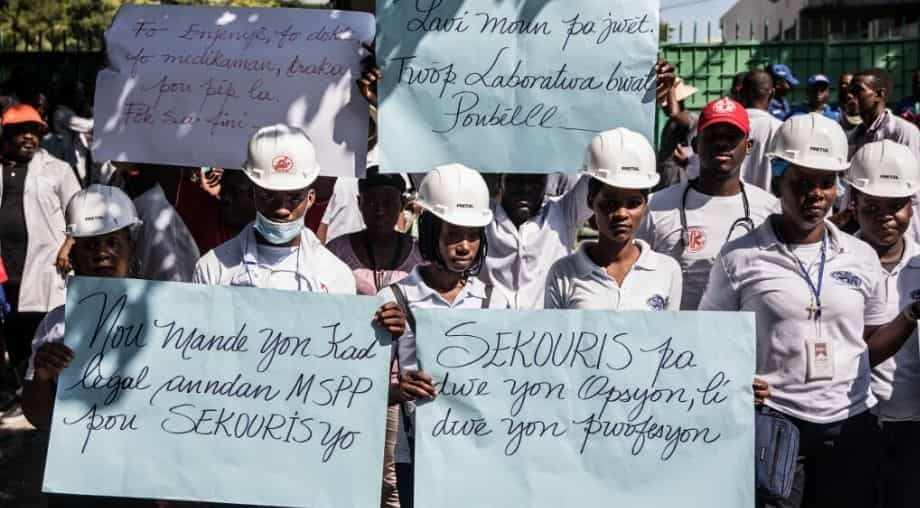 Fo Enjenyè, fo dokt
fo medikaman, traka
pou pèp la.
Fòk sa fini.
Lavi Moun pa jwèt.
Twòp Laboratwa bwat
Poubèlll
Nou Mande yon Kad
legal anndan MSPP
pou SEKOURIS yo
SEKOURIS pa
dwe yon Opsyon, li
dwe yon pwofesyon
PRETUL
PRETUL
PRETUL
PRETUL
PRETUL